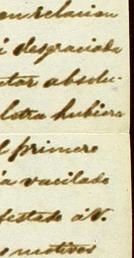 en relacion
i desgraciada
utar absolu-
lstra hubiera
l primero
ia vacilado
festado á V.
s motivos